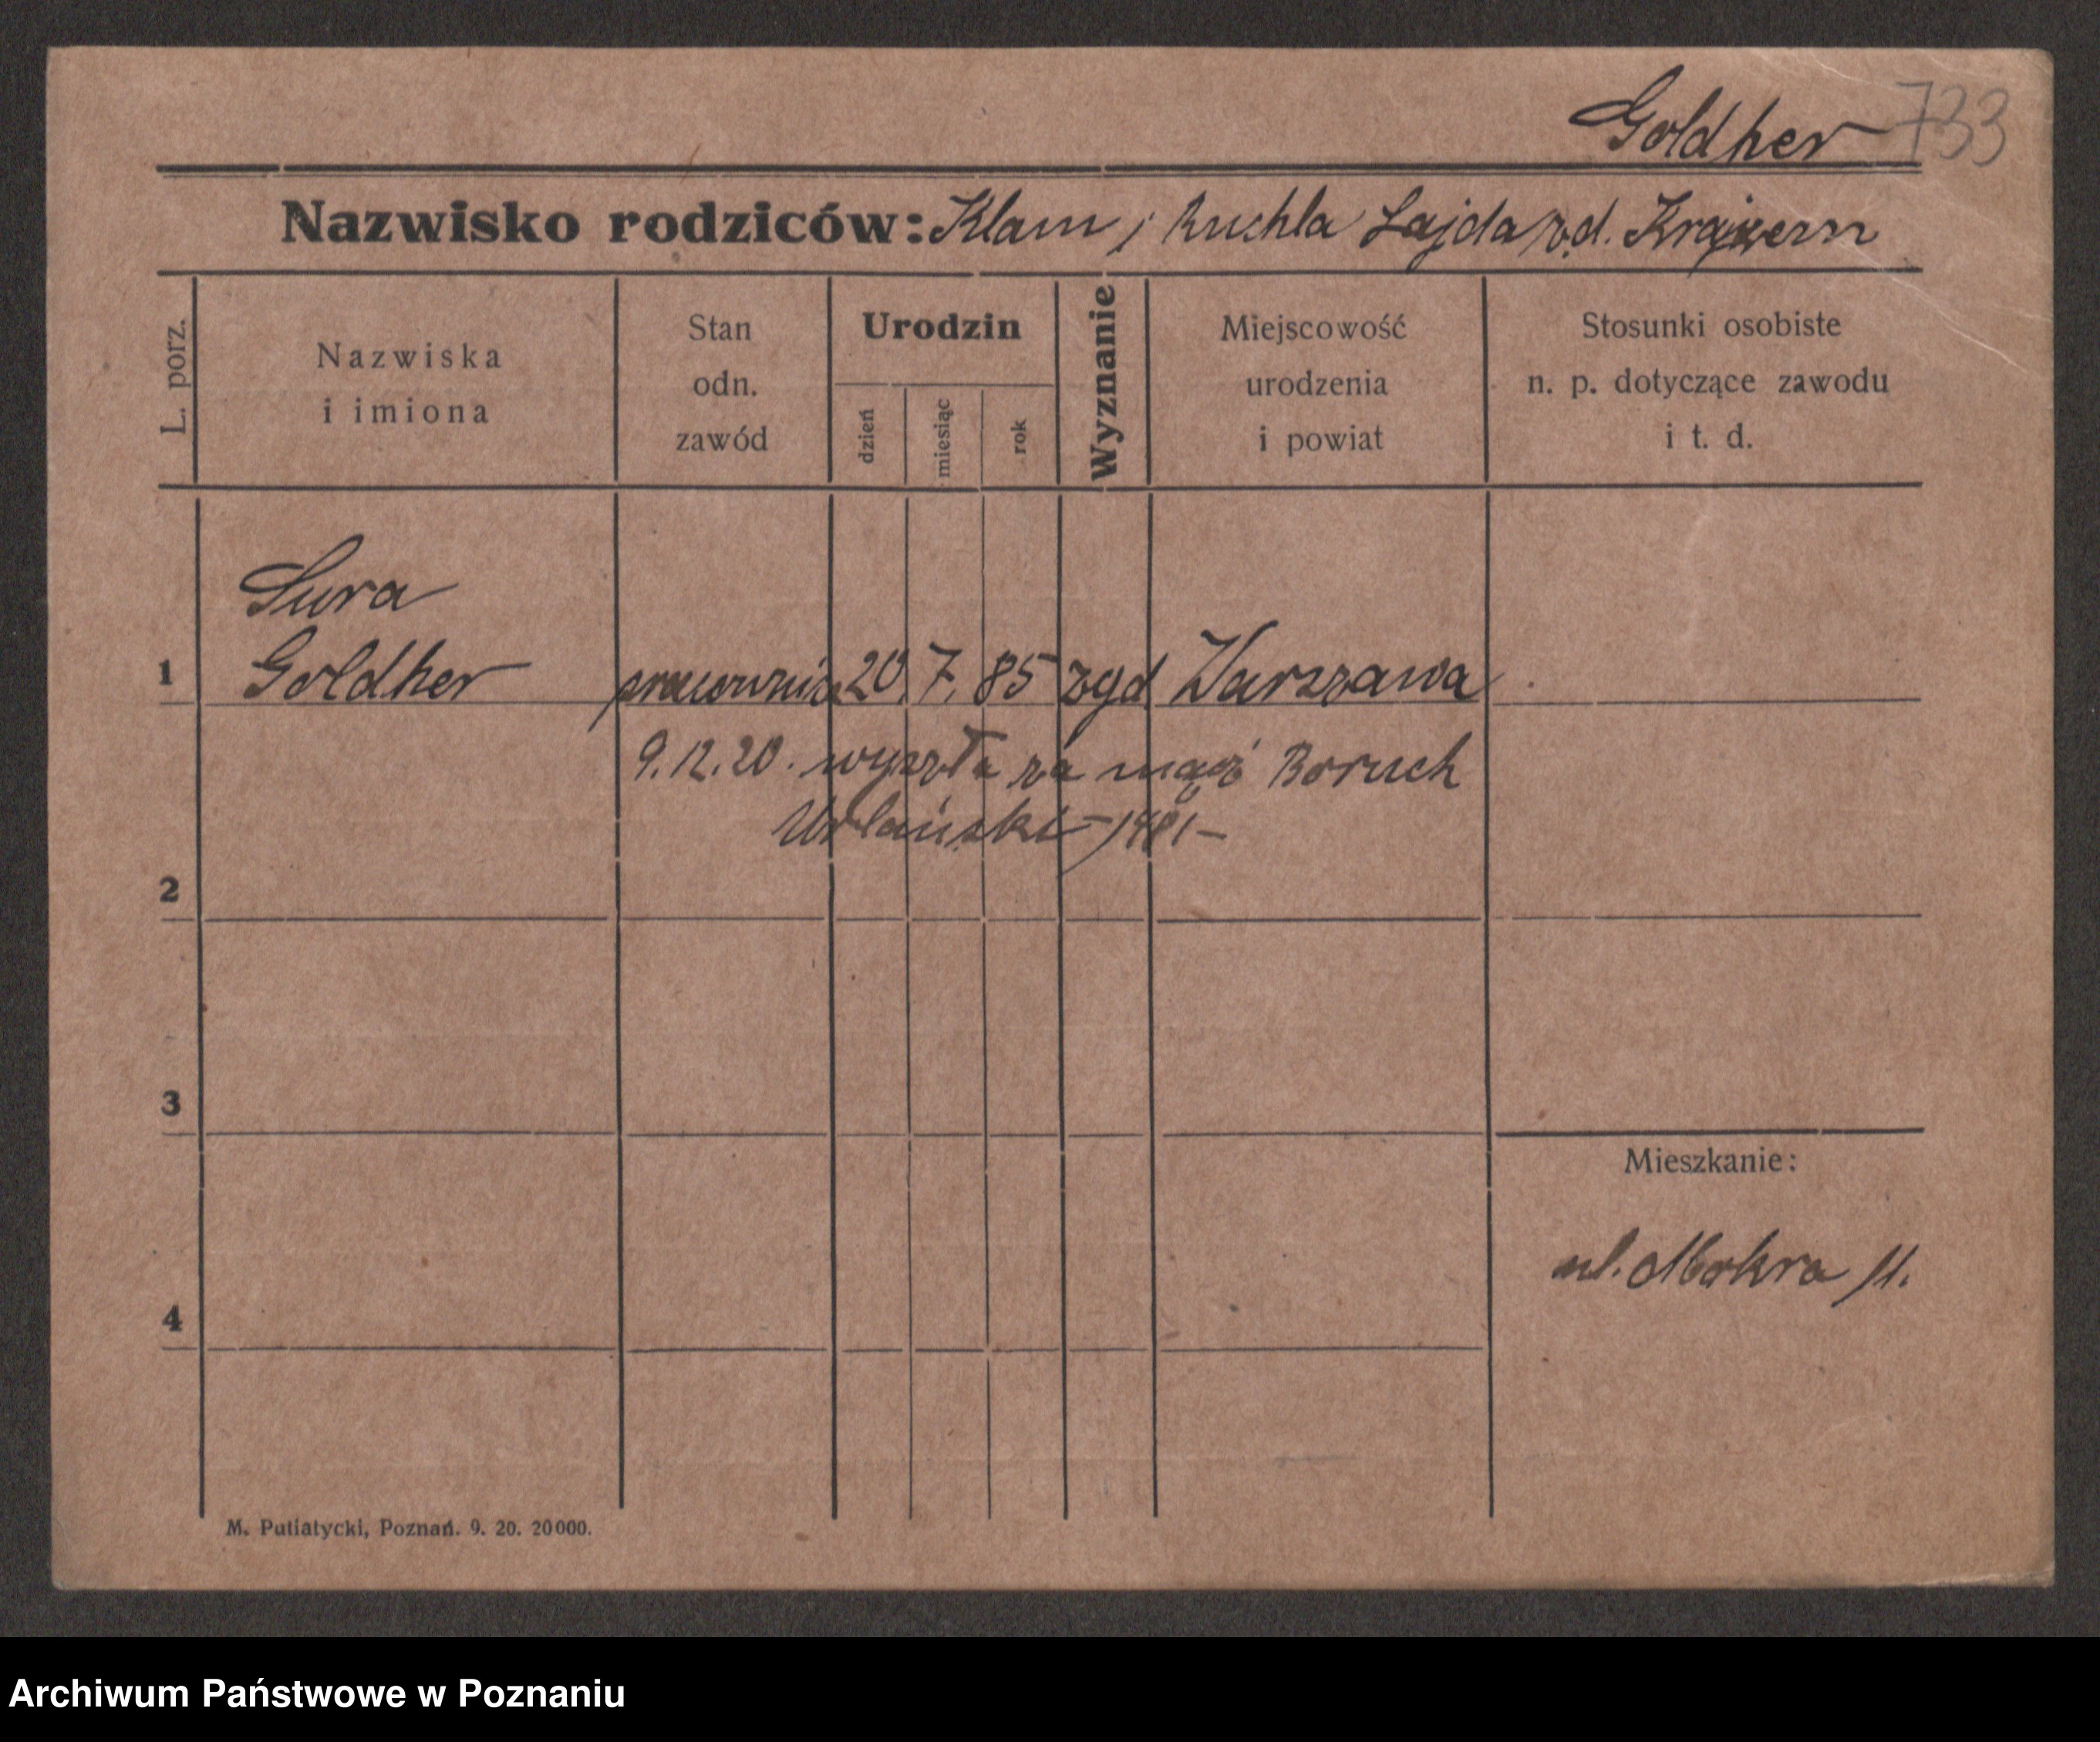 Goldher 733
Nazwisko rodziców: Klam i Ruchla Lajda z d.
L. porz.
Nazwiska
i imiona
Stan
odn.
zawód
Urodzin
dzień
miesiąc
rok
Wyznanie
Miejscowość
urodzenia
i powiat
Stosunki osobiste
n. p. dotyczące zawodu
i t. d.
Sura
1 Goldher 20. 7. 85 Warszawa
9.12.20. wyszła za mąż Boruch
2
3
Mieszkanie:
ul. Mokra 11.
4
M. Putiatycki, Poznań. 9. 20. 20000.
Archiwum Państwowe w Poznaniu